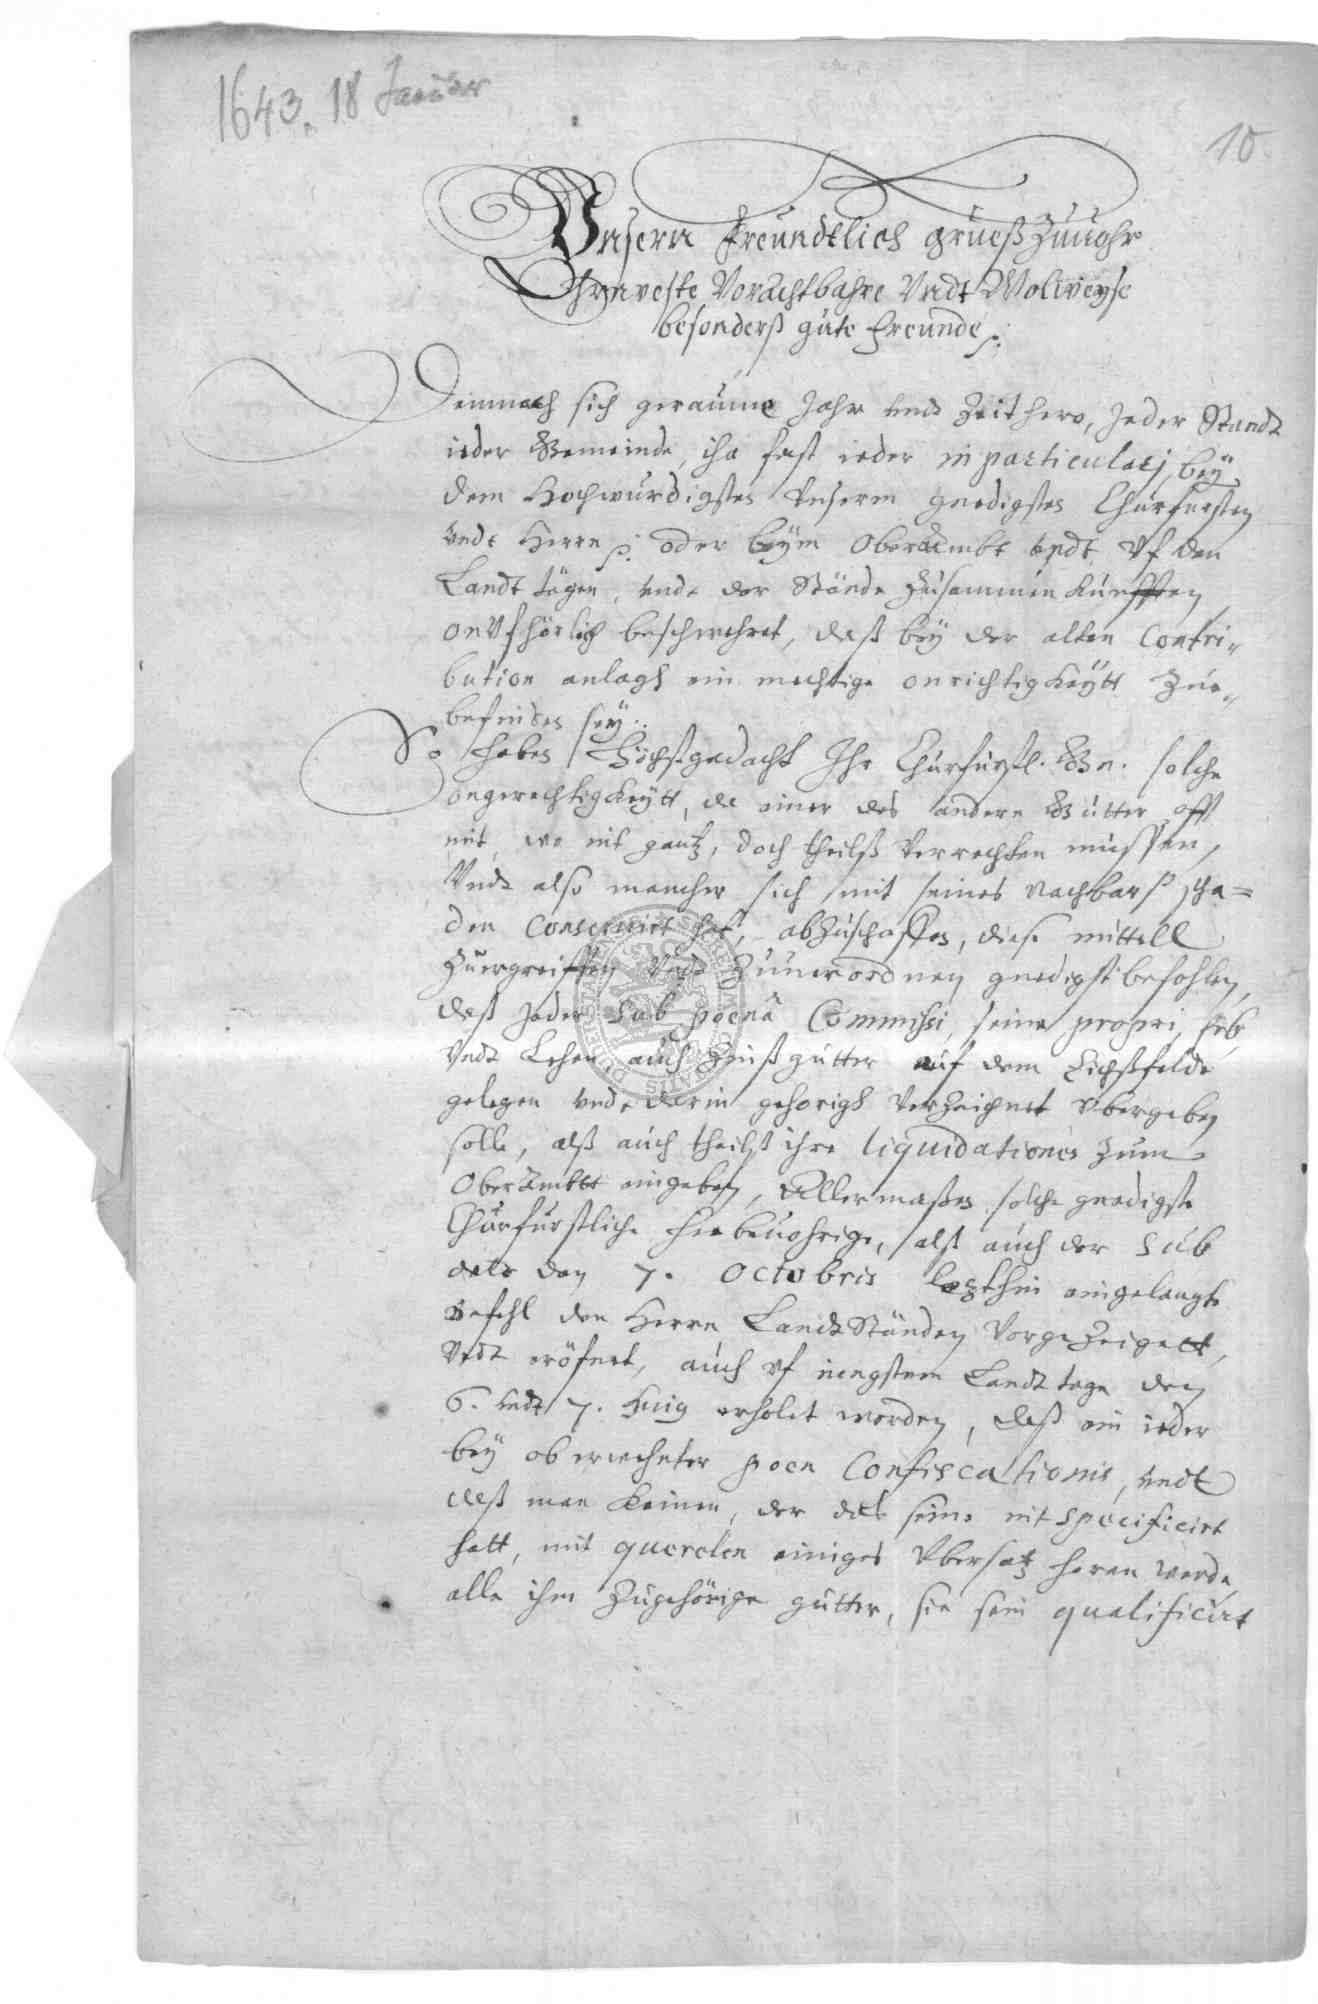 1643. 18 Januar
10
Unsern freundtlich grueß Zuuohr
Ehrnveste Vorachtbahre Undt Wolweyse
besonderß gute Freunde p.
Demnach sich geraume Jahr undt Zeit hero, Jeder Standt
ieder Gemeinde, iha fast ieder in particularj, beÿ
dem Hochwurdigsten Unserm gnedigsten Churfursten
undt Herrn p. oder beÿm Oberambt undt uf den
Landt tägen, undt der Stände Zusammen Kunfften
onufhörlich beschwehret, daß beÿ der alten Contri-
bution anlagh ein mechtige onrichtigkeÿtt Zue-
befinden seÿ.
So haben Höchstgedacht Ihr Churfürstl. Gn. solche
ongerechtigkeÿtt, da einer des andern Gütter offt
mit, wo nit gantz, doch theilß Verrechten müssen,
Undt also mancher sich mit seines nachbarß scha-
den Conservirt hat, abzuschaffen, diese mittell
Zuergreiffen Undt Zuuerordnen gnedigst befohlen,
daß Jeder sub poena Commissi, seine propri, Erb
undt Lehen, auch Zinß gutter auf dem Eichßfelde
gelegen undt darin gehorigh Verzeichnet ubergeben
solle, alß auch theilß ihre liquidationes Zum
Oberambtt eingeben, Allermaßen solche gnedigste
Churfurstliche hiebeuohrige, alß auch der sub
dato den 7. Octobris letzthin eingelangte
Befehl den Herrn LandtStänden Vorgezeigett,
Undt eröfnet, auch uf iungstem Landt tage den
6. undt 7. huig erholet worden, daß ein ieder
beÿ oberwehnter poen Confiscationis, undt
daß man Keinen, der das seine nit specificirt
hatt, mit querelen einiges Ubersatz horen werde
alle ihm Zugehörige gutter, sie sein qualificirt